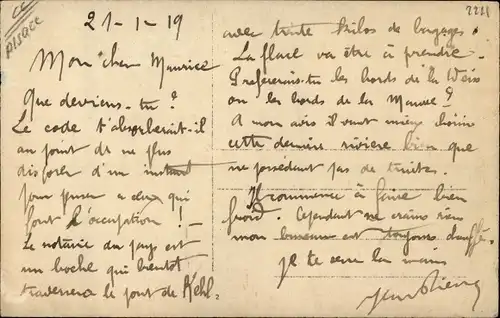 21-1-19
Mon cher Maurice
Que deviens-tu ?
Le code t'absorberait-il
au point de ne plus
disposer d'un instant
pour penser à ceux qui
font l'occupation ! -
Le notaire du pays est
un boche qui bientôt
traversera le pont de Kehl.
avec trente kilos de bagages.
La place va être à prendre.
Préfèrerais-tu les bords de la Weiss
ou les bords de la
A mon avis il vaut mieux choisir
cette dernière rivière bien que
ne possédant pas de truites.
Il commence à faire bien
froid. Cependant ne crains rien
mon bureau est toujours chauffé.
je te serre la main
Jean Pierre
2221